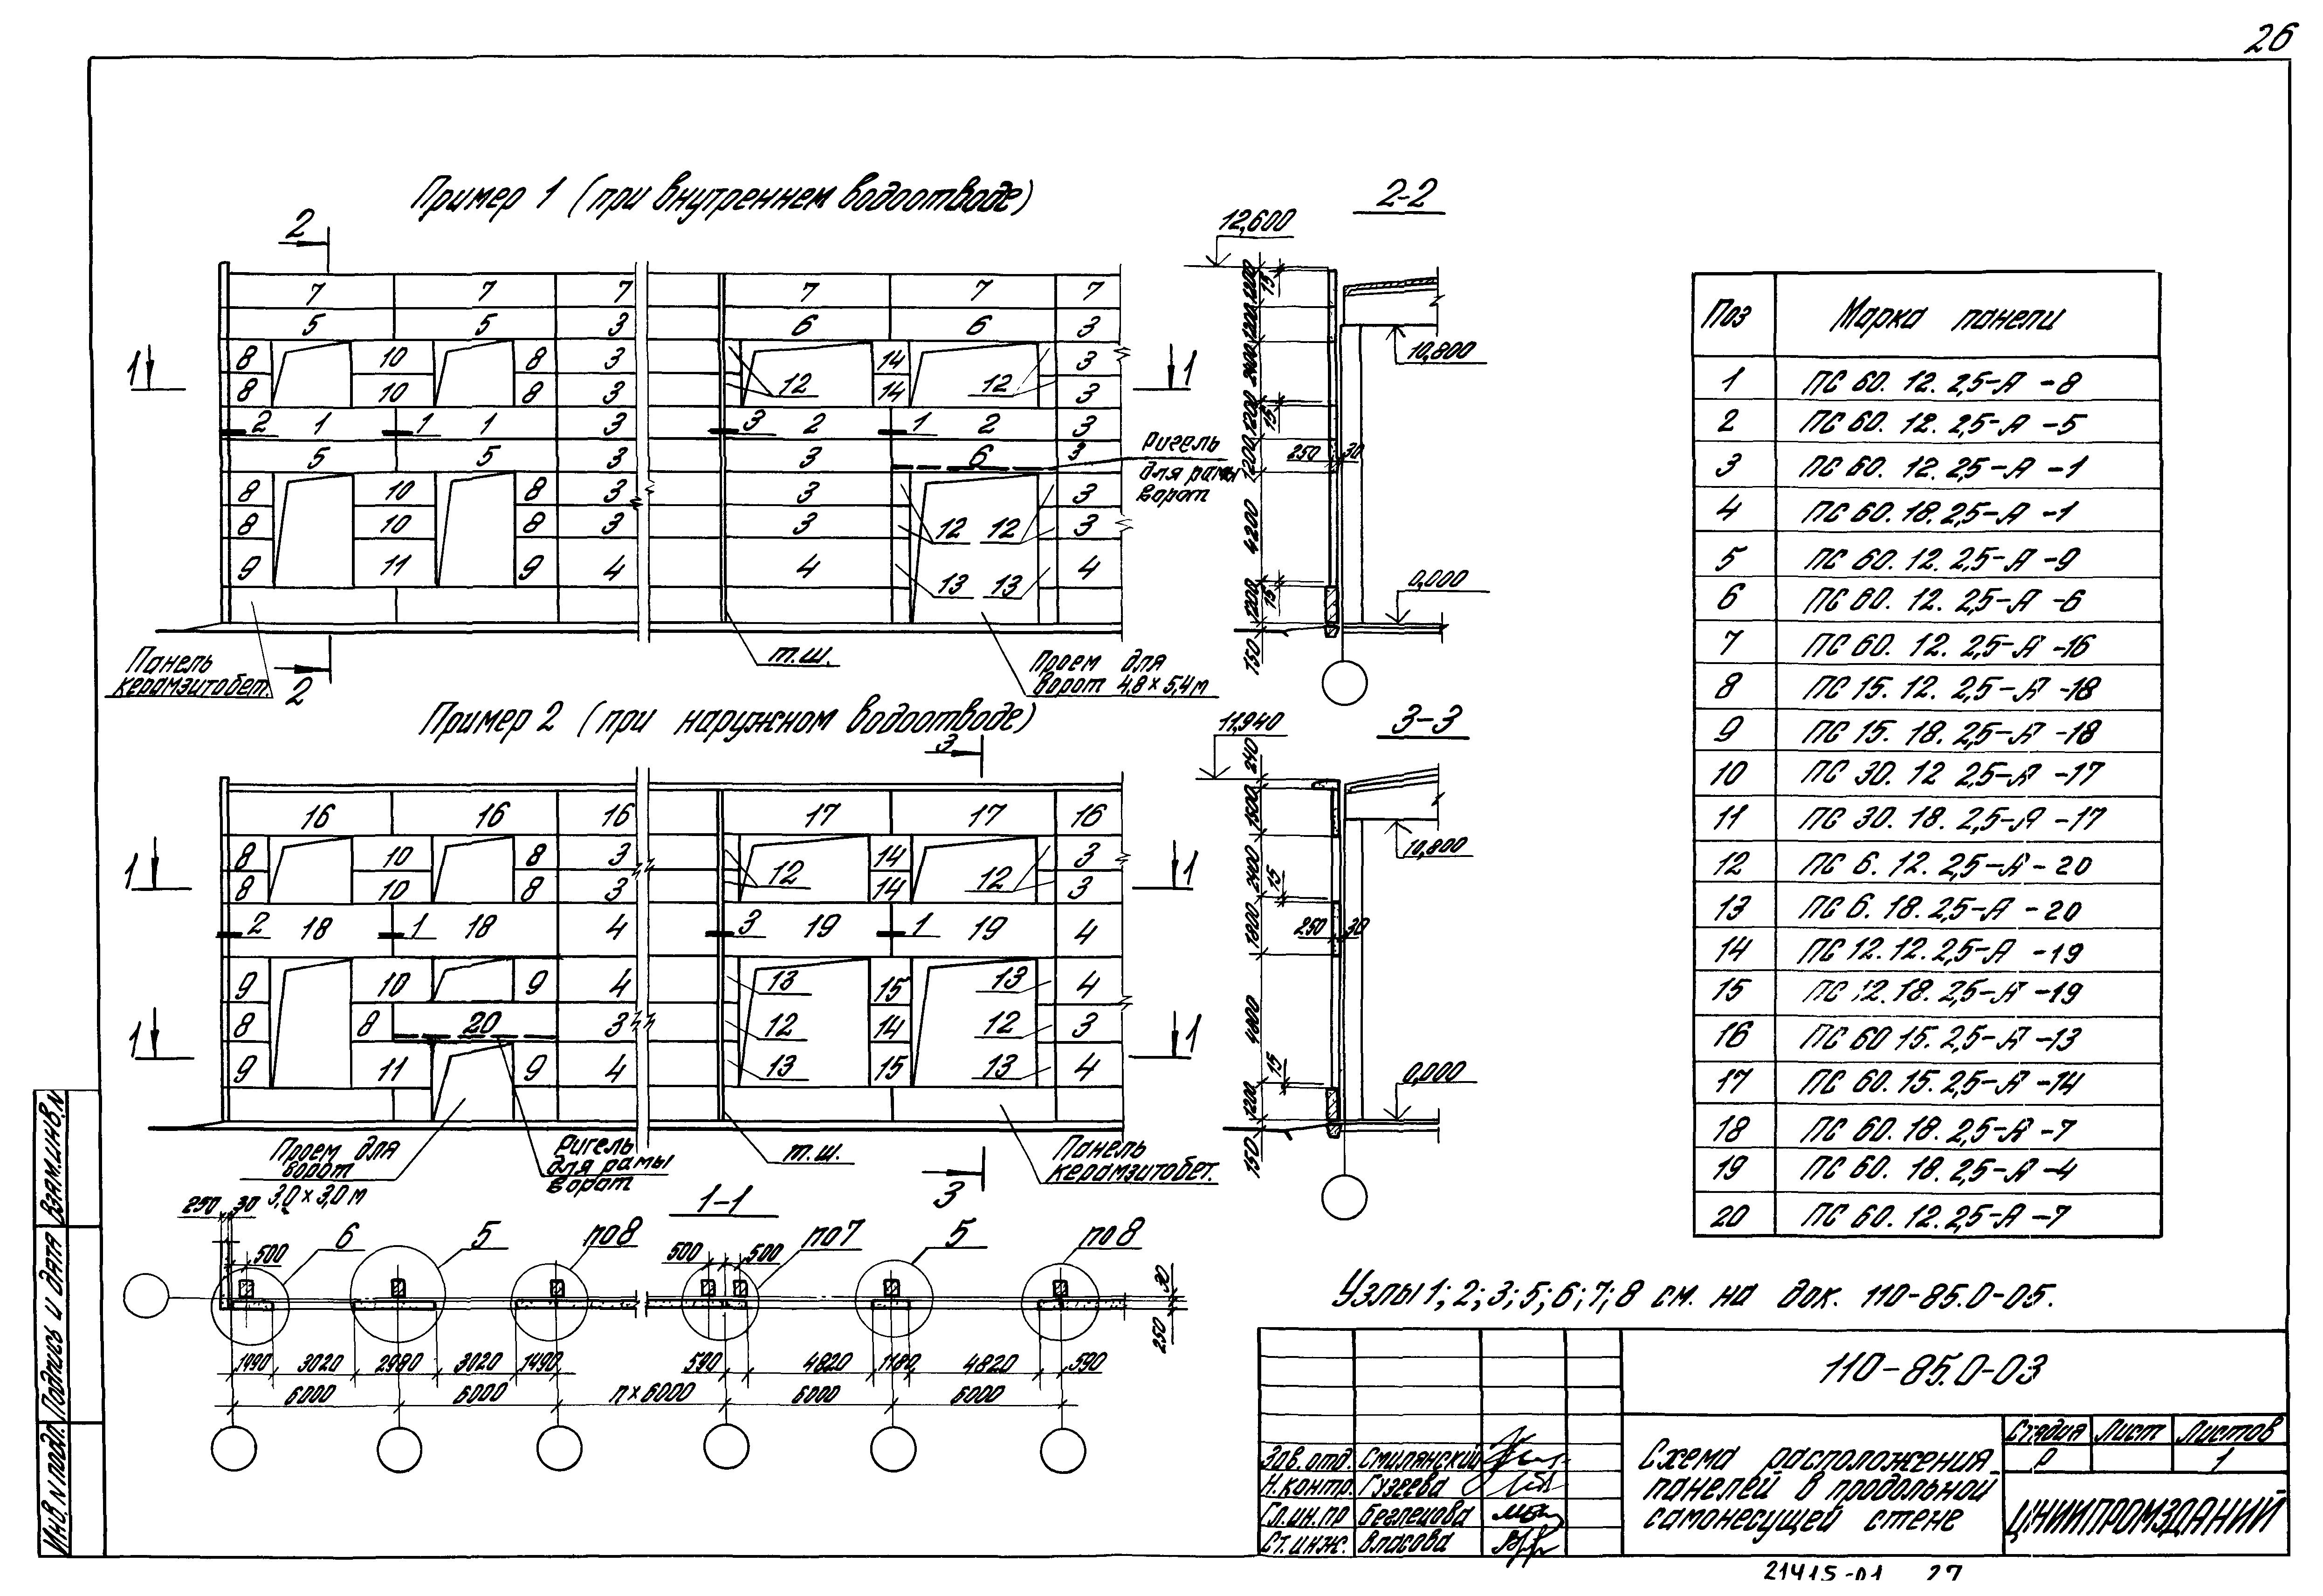 26
Пример 1 (при внутреннем водоотводе)
2
7 7 7 7 7 7
5 5 3 6 6 3
8 10 8 3 14 3
8 10 8 3 12 14 12 3
1 1
2 1 1 1 3 3 2 1 2 3
5 5 3 3 6 3
Ригель
для рамы
ворот
8 10 8 3 3 3
8 10 8 3 3 12 12 3
9 11 9 4 4 13 13 4
Панель
керамзитобет.
2
т.ш.
Проем для
ворот 4,8 × 5,4 м
2-2
12,600
1200 15 1200 2400 1200 15 1200 4200 15 1200 150
250 30
10,800
0,000
Пример 2 (при наружном водоотводе)
3
16 16 16 17 17 16
8 10 8 3 14 3
8 10 8 3 12 14 12 3
1 1
2 18 1 18 4 3 19 1 19 4
9 10 9 4 13 15 13 4
8 8 20 3 12 14 12 3
1 1
9 11 9 4 13 15 13 4
Проем для
ворот
3,0 × 3,0 м
Ригель
для рамы
ворот
т.ш.
3
Панель
керамзитобет.
3-3
11,940
240 1500 2400 15 1800 4800 15 1200 150
250 30
10,800
0,000
1-1
250 30
500 6 5 по 8 500 500 по 7 5 по 8
30
250
1490 3020 2980 3020 1490 590 4820 1180 4820 590
6000 6000 n × 6000 6000 6000
Поз Марка панели
1 ПС 60. 12. 2,5-А -8
2 ПС 60. 12. 2,5-А -5
3 ПС 60. 12. 2,5-А -1
4 ПС 60. 18. 2,5-А -1
5 ПС 60. 12. 2,5-А -9
6 ПС 60. 12. 2,5-А -6
7 ПС 60. 12. 2,5-А -16
8 ПС 15. 12. 2,5-А -18
9 ПС 15. 18. 2,5-А -18
10 ПС 30. 12 2,5-А -17
11 ПС 30. 18. 2,5-А -17
12 ПС 6. 12. 2,5-А - 20
13 ПС 6. 18. 2,5-А - 20
14 ПС 12. 12. 2,5-А -19
15 ПС 12. 18. 2,5-А -19
16 ПС 60 15. 2,5-А -13
17 ПС 60. 15. 2,5-А -14
18 ПС 60. 18. 2,5-А -7
19 ПС 60. 18. 2,5-А -4
20 ПС 60. 12. 2,5-А -7
Узлы 1; 2; 3; 5; 6; 7; 8 см. на док. 110-85.0-05.
110-85.0-03
Схема расположения
панелей в продольной
самонесущей стене
Стадия Лист Листов
Р 1
ЦНИИПРОМЗДАНИЙ
Зав. отд. Смилянский
Н. контр. Гузеева
Гл. ин. пр Беглецова
Ст. инж. Власова
Взам. инв. N
Подпись и дата
Инв. N подл.
21415-01 27